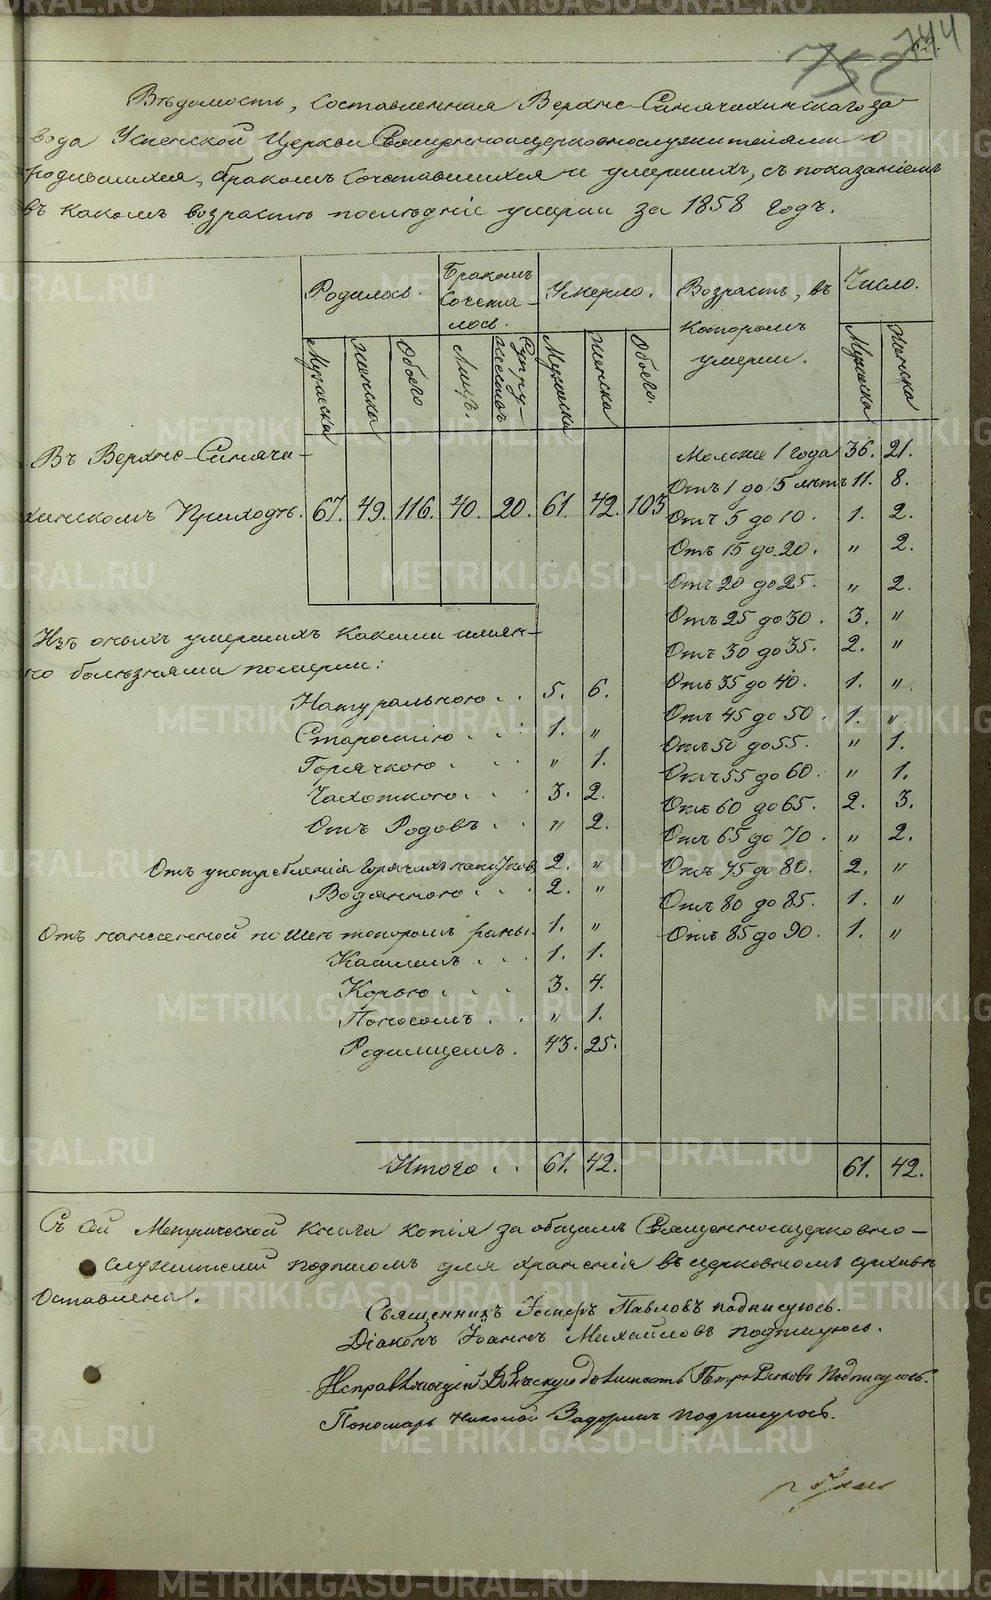 744
752
Вѣдомость, составленная Верхне-Синячихинскаго за-
вода Успенской Церкви Священноцерковнослужителями о
родившихся, бракомъ сочетавшихся и умершихъ, съ показаніемъ
въ какомъ возрастѣ послѣдніе умерли за 1858 годъ.
Родилось. Бракомъ сочета-лось. Умерло. Возрастъ, въ которомъ умерли. Число.
Мужеска Женска Обоего Лицъ. Супру-жествъ Мужеска Женска Обоего. Мужеска Женска
Въ Верхне-Синячи-
хинскомъ Приходѣ. 67. 49. 116. 40. 20. 61. 42. 103
Моложе 1 года 36. 21.
Отъ 1 до 5 лѣтъ 11. 8.
Отъ 5 до 10. 1. 2.
Отъ 15 до 20. " 2.
Отъ 20 до 25. " 2.
Отъ 25 до 30. 3. "
Отъ 30 до 35. 2. "
Отъ 35 до 40. 1. "
Отъ 45 до 50. 1. "
Отъ 50 до 55. " 1.
Отъ 55 до 60. " 1.
Отъ 60 до 65. 2. 3.
Отъ 65 до 70. " 2.
Отъ 75 до 80. 2. "
Отъ 80 до 85. 1. "
Отъ 85 до 90. 1. "
Изъ оныхъ умершихъ какими имян-
но болѣзнями померли:
Натуральною . . 5. 6.
Старостію . . . 1. "
Горячкою . . . " 1.
Чахоткою . . . 3. 2.
Отъ Родовъ . . " 2.
Отъ употребленія горячихъ напитковъ 2. "
Водянкою . . . 2. "
Отъ нанесенной по шеѣ топоромъ раны. 1. "
Кашлемъ . . . 1. 1.
Корью . . . . 3. 4.
Поносомъ . . " 1.
Родимцемъ. 43. 25.
Итого . . 61. 42. 61. 42.
Съ сей Метрической книги копія за общимъ Священноцерковно-
служителей подписомъ для храненія въ церковномъ архивѣ
оставлена.
Священникъ Павловъ подписуюсь.
Діаконъ Іоаннъ Михайловъ подписуюсь.
Исправляющій должность Петръ подписуюсь.
Пономарь Николай Задоринъ подписуюсь.
METRIKI.GASO-URAL.RU